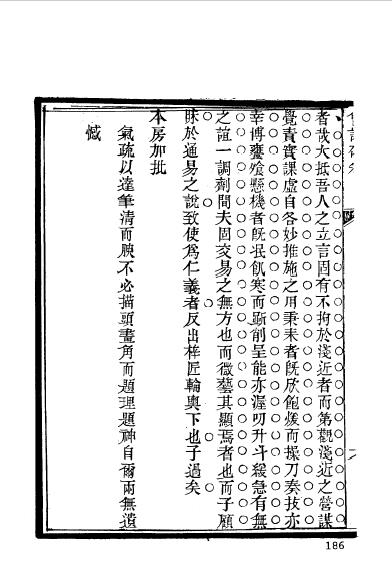 者哉大抵吾人之立言固有不拘於淺近者而第觀淺近之營謀
覺責實課虛自各妙推施之用秉耒者旣欣飽煖而操刀奏技亦
幸博饔飧懸機者旣泯飢寒而斲削呈能亦渥叨升斗緩急有無
之誼一調劑間夫固交易之無方也而微藝其顯焉者也而子顧
昧於通易之說致使爲仁義者反出梓匠輪輿下也子過矣
本房加批
氣疏以達筆清而腴不必描頭畫角而題理題神自爾兩無遺
憾
186